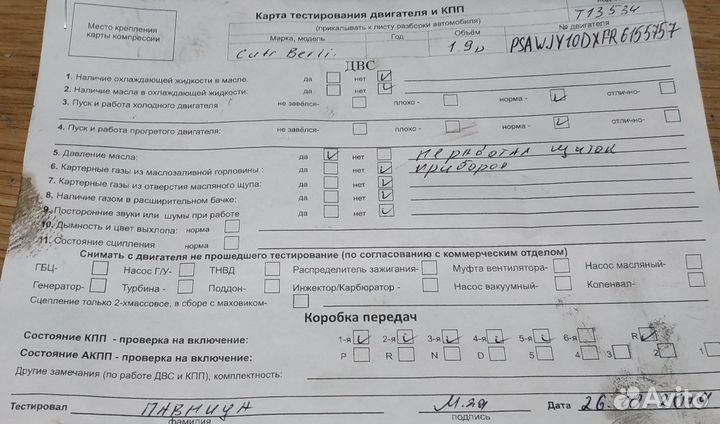 Место крепления карты компрессии
Карта тестирования двигателя и КПП
(прикалывать к листу разборки автомобиля)
T13534
Марка, модель Год Объём № двигателя
Citr Berli. 1.9D PSAWJY10DXFR6155757
ДВС
1. Наличие охлаждающей жидкости в масле. да нет ✓
2. Наличие масла в охлаждающей жидкости: да нет ✓
3. Пуск и работа холодного двигателя не завёлся- плохо - норма - ✓ отлично-
4. Пуск и работа прогретого двигателя: не завёлся- плохо - норма - ✓ отлично-
5. Давление масла: да ✓ нет не работал щиток
6. Картерные газы из маслозаливной горловины : да нет ✓ приборов
7. Картерные газы из отверстия масляного щупа: да нет ✓
8. Наличие газом в расширительном бачке: да нет ✓
9. Посторонние звуки или шумы при работе да нет ✓
10. Дымность и цвет выхлопа: норма
11. Состояние сцепления норма
Снимать с двигателя не прошедшего тестирование (по согласованию с коммерческим отделом)
ГБЦ- Насос Г/У- ТНВД Распределитель зажигания- Муфта вентилятора- Насос масляный-
Генератор- Турбина - Поддон- Инжектор/Карбюратор - Насос вакуумный- Коленвал-
Сцепление только 2-хмассовое, в сборе с маховиком-
Коробка передач
Состояние КПП - проверка на включение: 1-я ✓ 2-я ✓ 3-я ✓ 4-я ✓ 5-я ✓ 6-я R ✓
Состояние АКПП - проверка на включение: P R N D 5 4 3 2 1
Другие замечания (по работе ДВС и КПП), комплектность:
Тестировал Дата 26.
фамилия подпись
Avito